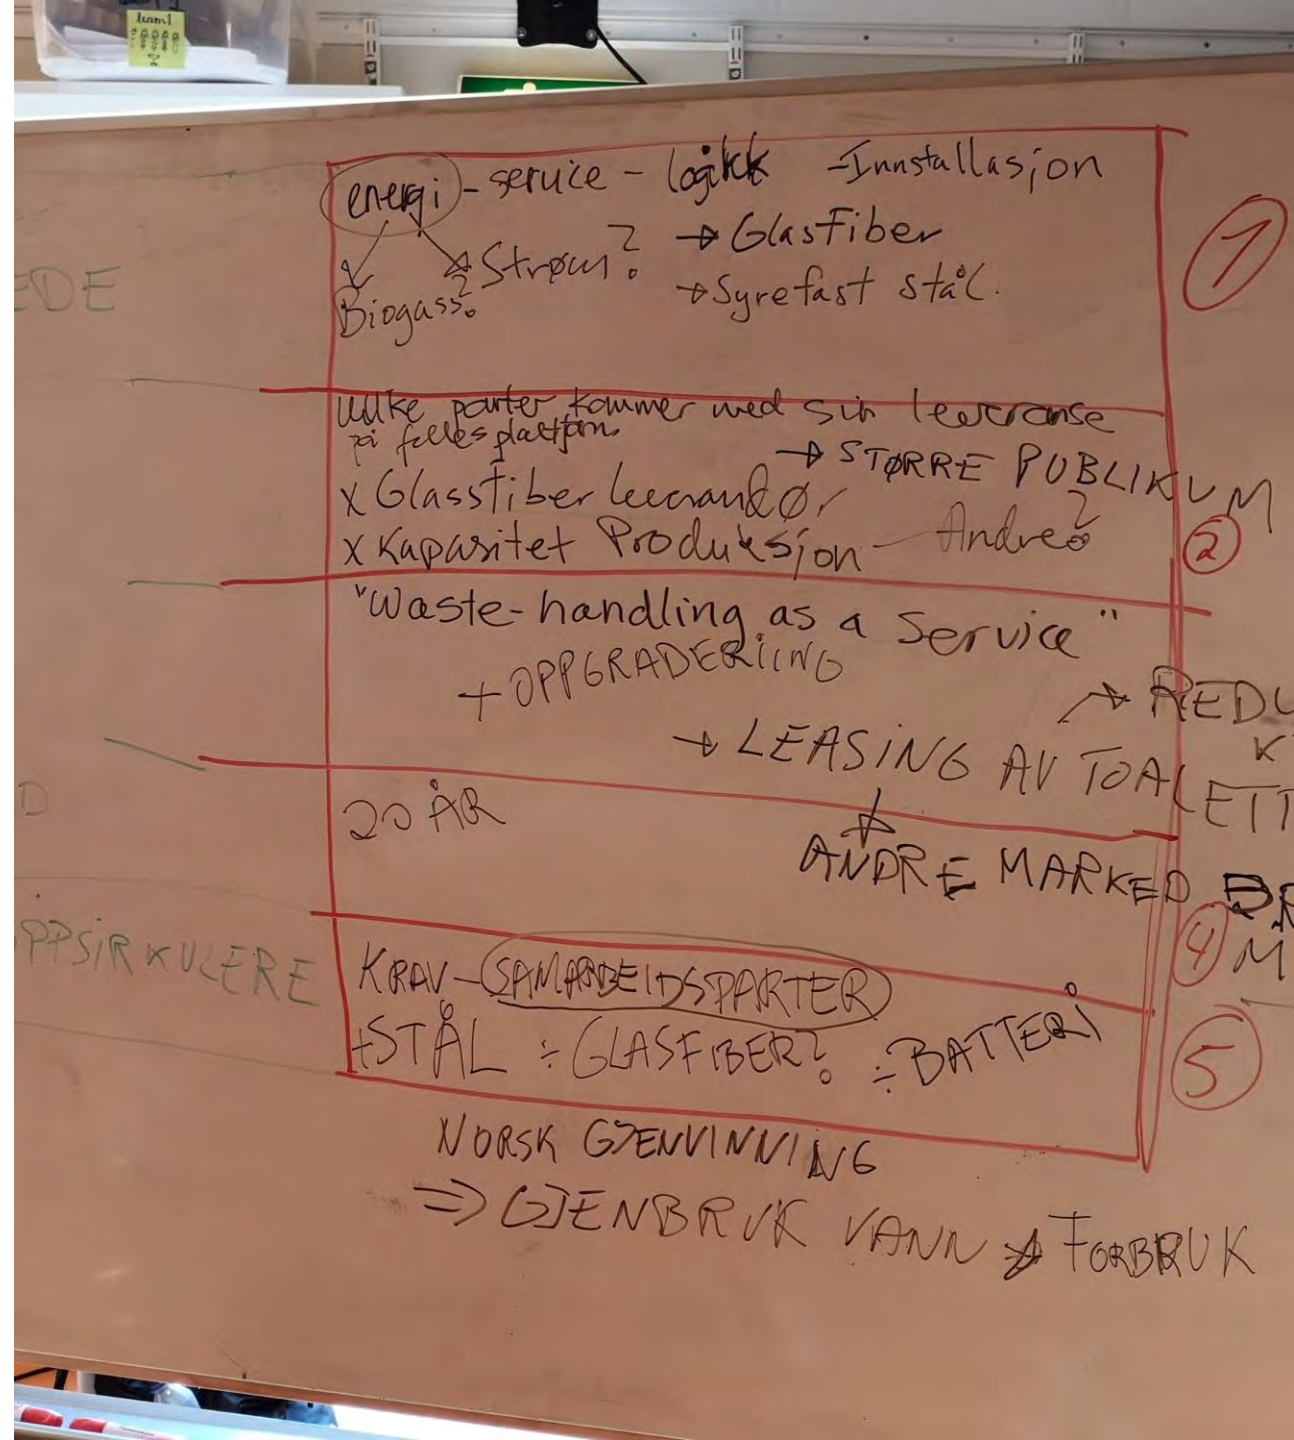 team1
energi - service - logikk - Innstallasjon
Biogass? Strøm? → Glasfiber
→ Syrefast stål.
EDE
1
Ulike parter kommer med sin leveranse
på felles plattform
→ STØRRE PUBLIKUM
x Glassfiber leverandør
x Kapasitet Produksjon - Andre?
2
"Waste-handling as a Service"
+ OPPGRADERIING
→ REDU
K
→ LEASING AV TOALETT
20 ÅR
D
ANDRE MARKED
4
M
PPSIRKULERE
KRAV - SAMARBEIDSPARTER
+STÅL ÷ GLASFIBER? ÷ BATTERI
5
NORSK GJENVINNING
=> GJENBRUK VANN → FORBRUK